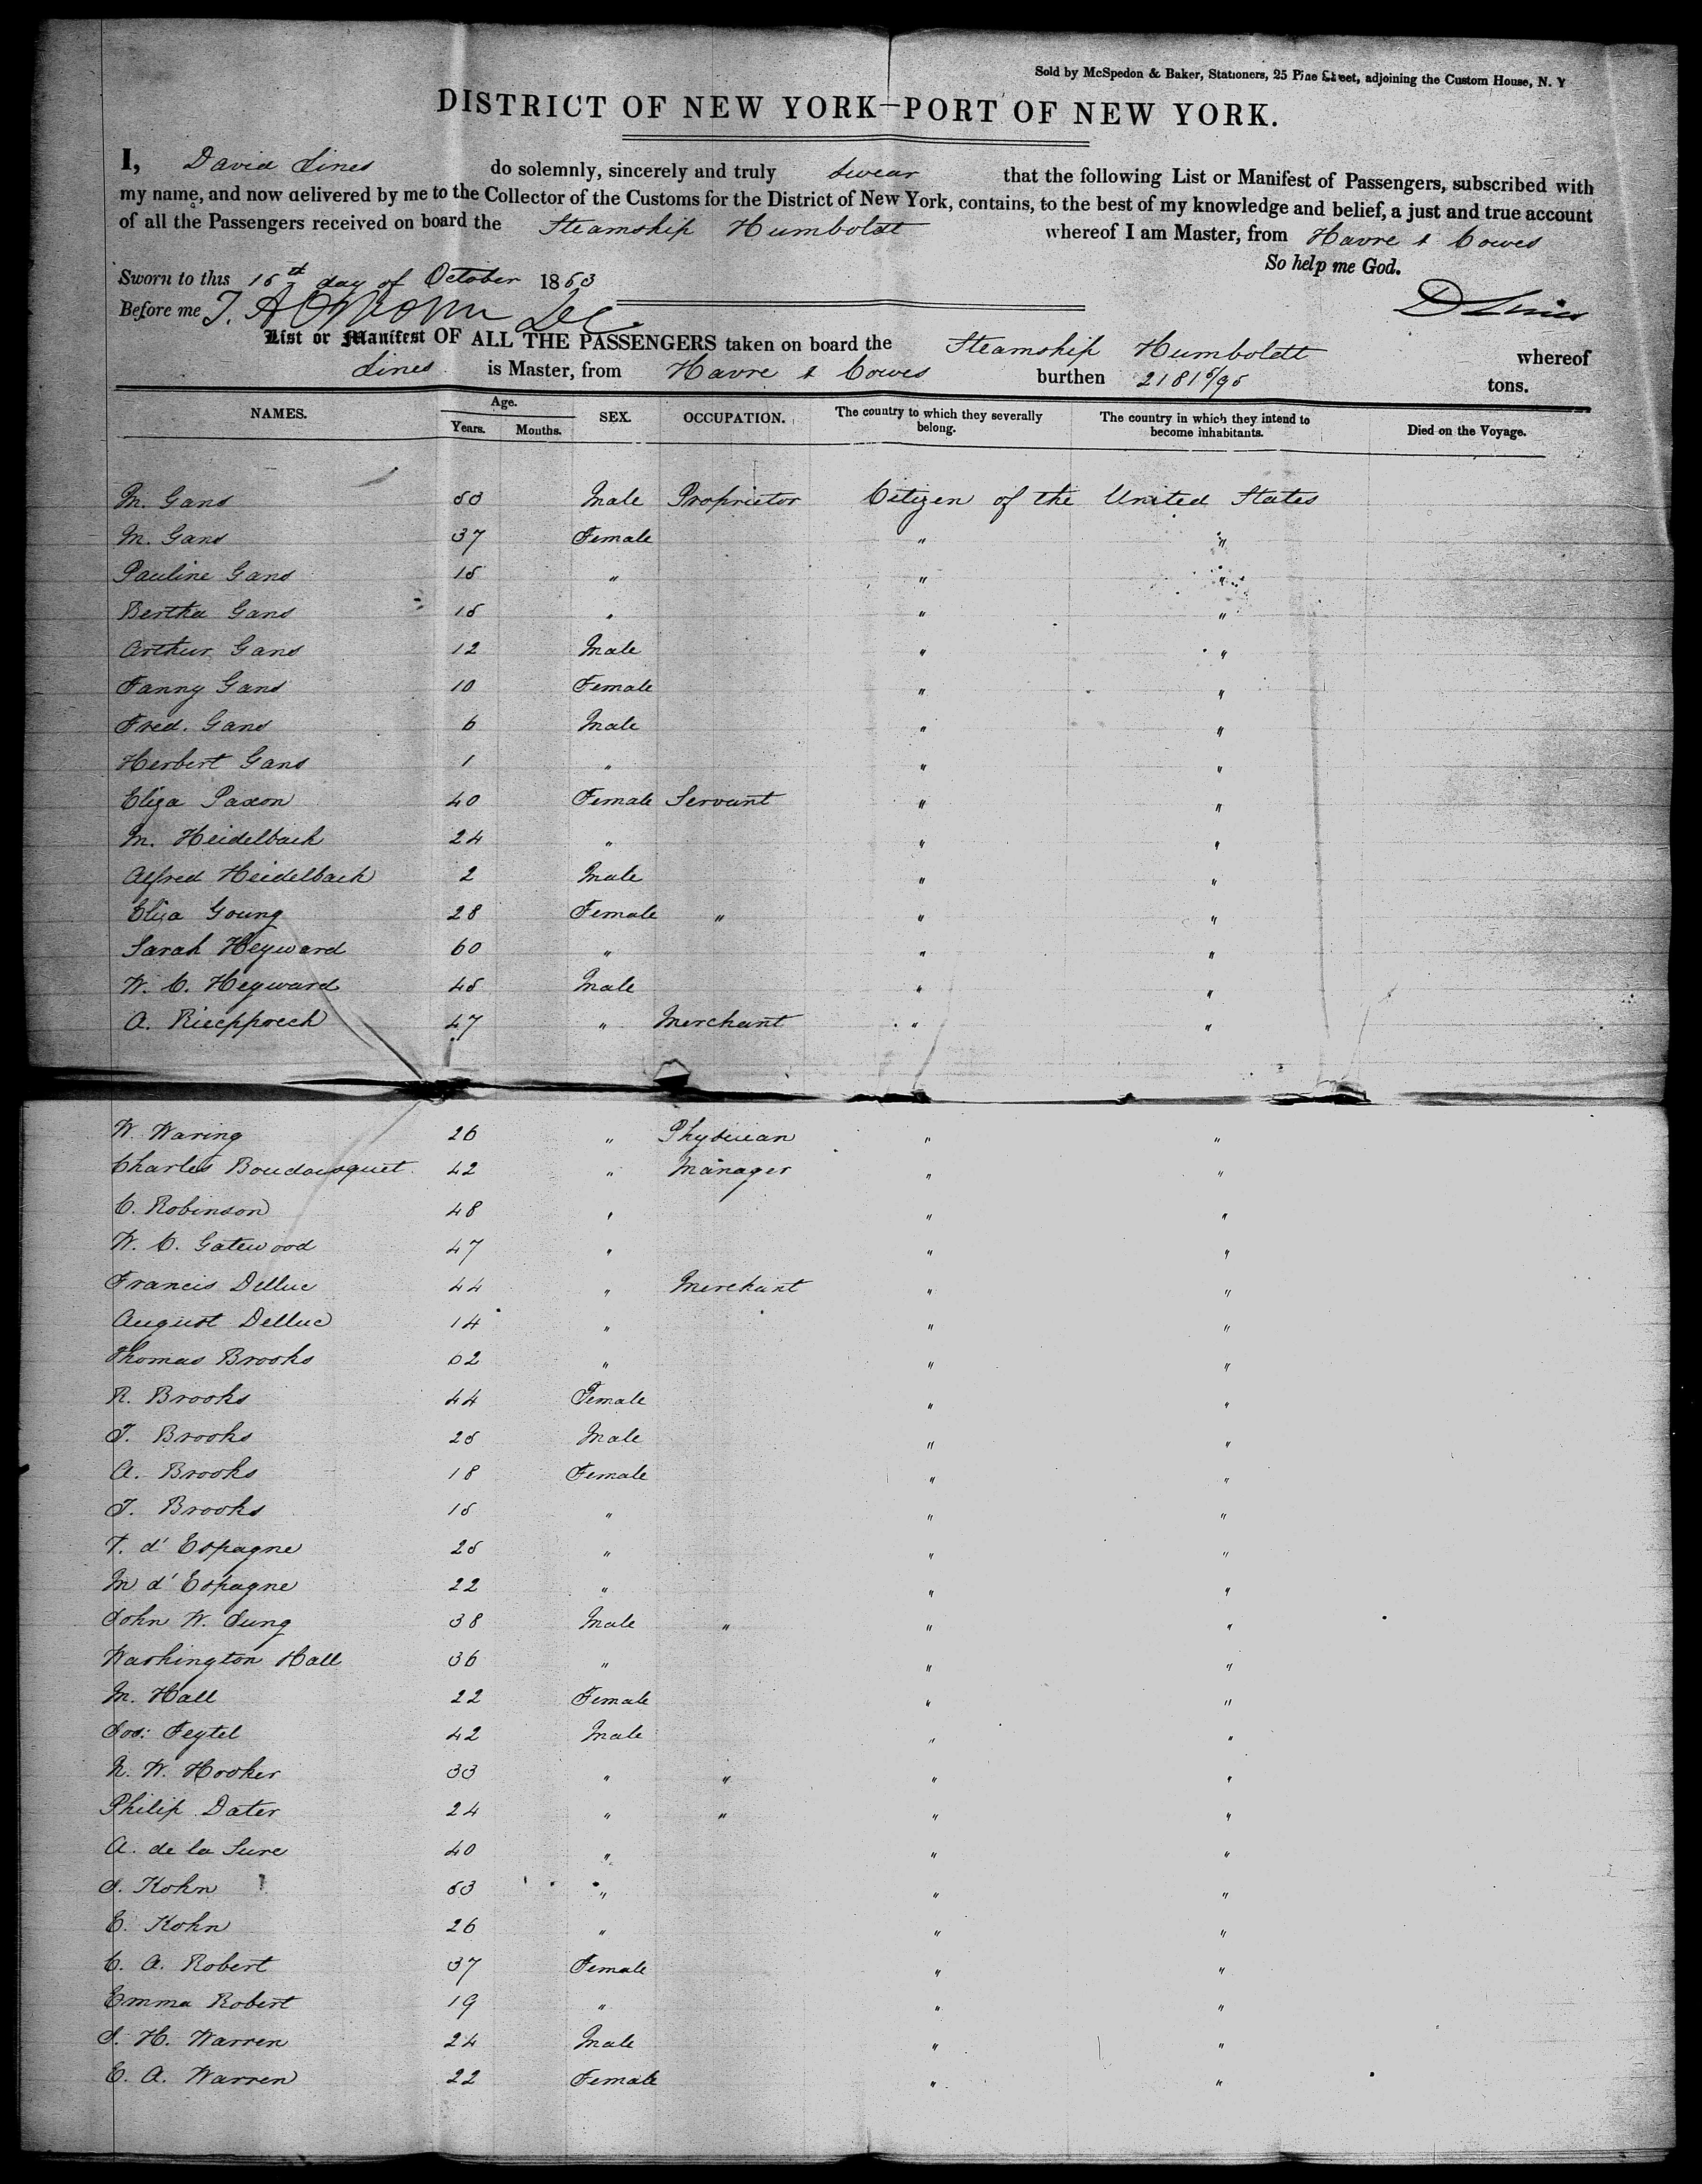 Sold by McSpedon & Baker, Stationers, 25 Pine Street, adjoining the Custom House, N. Y
DISTRICT OF NEW YORK—PORT OF NEW YORK.
I, David Lines do solemnly, sincerely and truly swear that the following List or Manifest of Passengers, subscribed with
my name, and now delivered by me to the Collector of the Customs for the District of New York, contains, to the best of my knowledge and belief, a just and true account
of all the Passengers received on board the Steamship Humboldt whereof I am Master, from Havre & Cowes
So help me God.
Sworn to this 15th day of October 1853
Before me D Lines
List or Manifest OF ALL THE PASSENGERS taken on board the Steamship Humboldt whereof
Lines is Master, from Havre & Cowes burthen 2181 5/95 tons.
NAMES. Age. Years. Months. SEX. OCCUPATION. The country to which they severally belong. The country in which they intend to become inhabitants. Died on the Voyage.
M. Gans 50 Male Proprietor Citizen of the United States
M. Gans 37 Female " "
Pauline Gans 15 " " "
Bertha Gans 15 " " "
Arthur Gans 12 Male " "
Fanny Gans 10 Female " "
Fred. Gans 6 Male " "
Herbert Gans 1 " " "
Eliza Paxon 40 Female Servant " "
M. Heidelbach 24 " " "
Alfred Heidelbach 2 Male " "
Eliza Young 28 Female " " "
Sarah Heyward 60 " " "
W. C. Heyward 45 Male " "
A. 47 " Merchant " "
W. Waring 26 " Physician " "
Charles Boudousquet 42 " Manager " "
C. Robinson 48 " " "
W. C. Gatewood 47 " " "
Francis Delluc 44 " Merchant " "
August Delluc 14 " " "
Thomas Brooks 52 " " "
R. Brooks 44 Female " "
T. Brooks 25 Male " "
A. Brooks 18 Female " "
T. Brooks 15 " " "
T. d'Espagne 25 " " "
M d'Espagne 22 " " "
John W. Jung 38 Male " " "
Washington Hall 36 " " "
M. Hall 22 Female " "
Jos: Feytel 42 Male " "
N. W. Hooker 33 " " " "
Philip Dater 24 " " " "
A. de la Sure 40 " " "
J. Kohn 53 " " "
E. Kohn 26 " " "
C. A. Robert 37 Female " "
Emma Robert 19 " " "
J. H. Warren 24 Male " "
E. A. Warren 22 Female " "